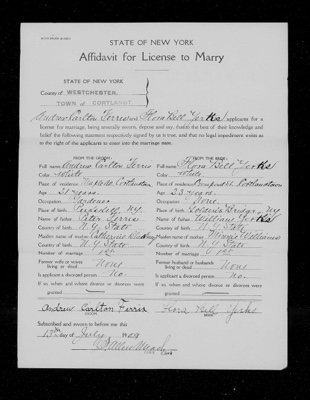 STATE OF NEW YORK
Affidavit for License to Marry
STATE OF NEW YORK
County of WESTCHESTER,
TOWN of CORTLANDT
Andrew Carlton Ferris and Flora Bell Yerks applicants for a
license for marriage, being severally sworn, depose and say, that to the best of their knowledge and
belief the following statement respectively signed by us is true, and that no legal impediment exists as
to the right of the applicants to enter into the marriage state.
FROM THE GROOM: FROM THE BRIDE:
Full name Andrew Carlton Ferris Full name Flora Bell Yerks
Color White Color White
Place of residence Place of residence
Age 21 years Age 23 years
Occupation Gardener Occupation None
Place of birth Peekskill N.Y. Place of birth N.Y.
Name of father Peter Ferris Name of father William Yerks
Country of birth N.Y. State Country of birth N.Y. State
Maiden name of mother Catharine Maiden name of mother Minnie Williams
Country of birth N.Y. State Country of birth N.Y. State
Number of marriage 1st Number of marriage 1st
Former wife or wives living or dead None Former husband or husbands living or dead None
Is applicant a divorced person no Is applicant a divorced person no
If so, when and where divorce or divorces were granted If so, when and where divorce or divorces were granted
Andrew Carlton Ferris Flora Bell Yerks
GROOM BRIDE
Subscribed and sworn to before me this
13th day of July 1909